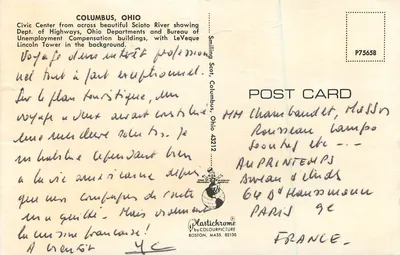 COLUMBUS, OHIO
Civic Center from across beautiful Scioto River showing
Dept. of Highways, Ohio Departments and Bureau of
Unemployment Compensation buildings, with LeVeque
Lincoln Tower in the background.
Voyage d'un intérêt profession
nel tout à fait exceptionnel.
Sur le plan touristique, un
voyage à deux aurait constitué
une meilleure solution. Je
m'habitue cependant bien
à la vie américaine depuis
que mon compagnon de route
m'a quitté. Mais vivement
la cuisine française!
A bientôt YC
Smiling Scot, Columbus, Ohio 43212
Plastichrome
by COLOURPICTURE
BOSTON, MASS. 02130
P75658
POST CARD
MM Chambaudet,
Rousseau Campo
etc -..
AU PRINTEMPS
Bureau d'Etudes
64 Bd Haussmann
PARIS 9e
FRANCE.